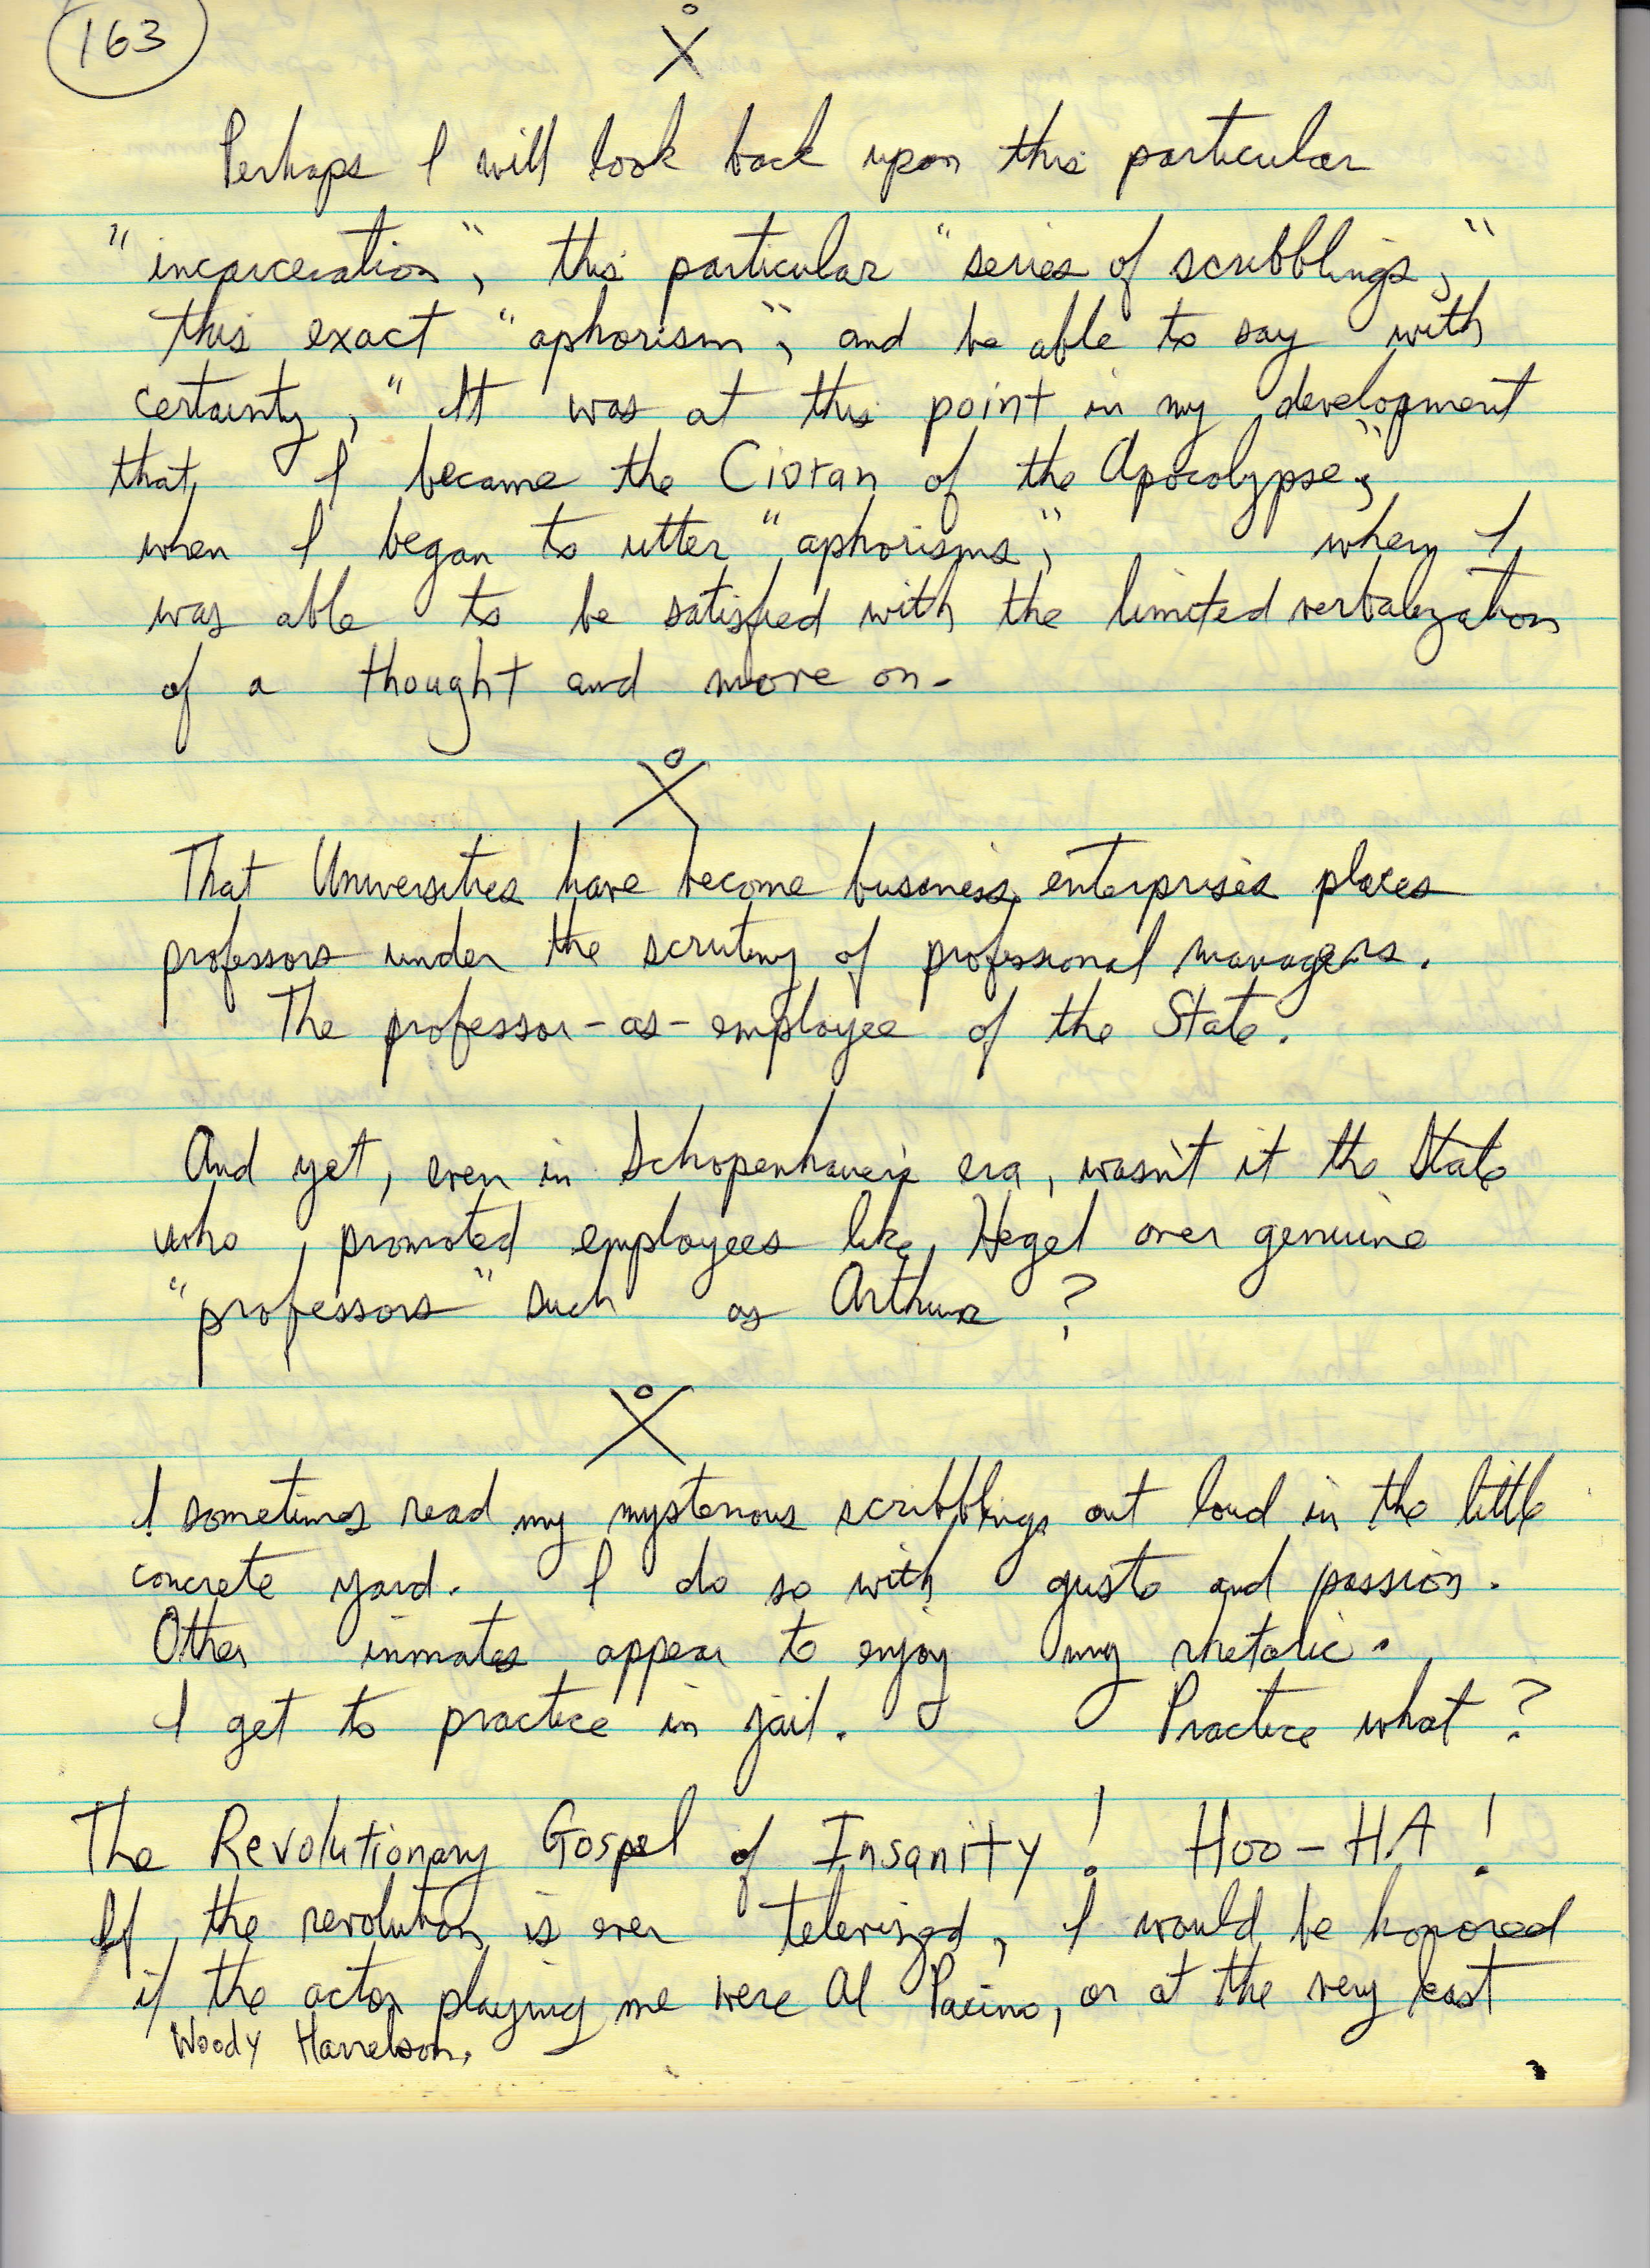 163
Perhaps I will look back upon this particular
"incarceration", this particular "series of scribblings,"
this exact "aphorism", and be able to say with
certainty, "It was at this point in my development
that I became the Cioran of the Apocalypse",
when I began to utter "aphorisms," when I
was able to be satisfied with the limited verbalization
of a thought and move on.
That Universities have become business enterprises places
professors under the scrutiny of professional managers.
The professor-as-employee of the State.
And yet, even in Schopenhauer's era, wasn't it the State
who promoted employees like Hegel over genuine
"professors" such as Arthur?
I sometimes read my mysterious scribblings out loud in the little
concrete yard. I do so with gusto and passion.
Other inmates appear to enjoy my rhetoric.
I get to practice in jail. Practice what?
The Revolutionary Gospel of Insanity! Hoo-HA!
If the revolution is ever televized, I would be honored
if the actor playing me were Al Pacino, or at the very least
Woody Harrelson.